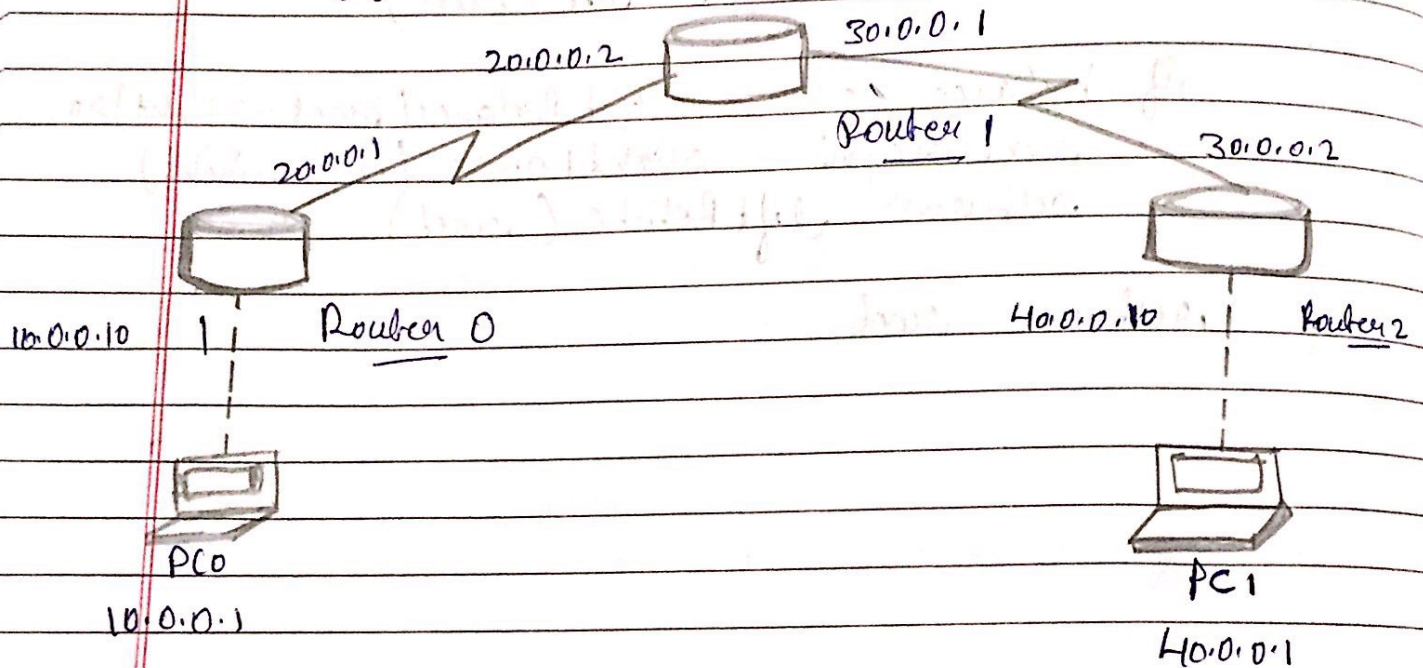 30.0.0.1
20.0.0.2
Router 1
20.0.0.1
30.0.0.2
10.0.0.10
Router 0
40.0.0.10
Router 2
PC0
10.0.0.1
PC1
40.0.0.1